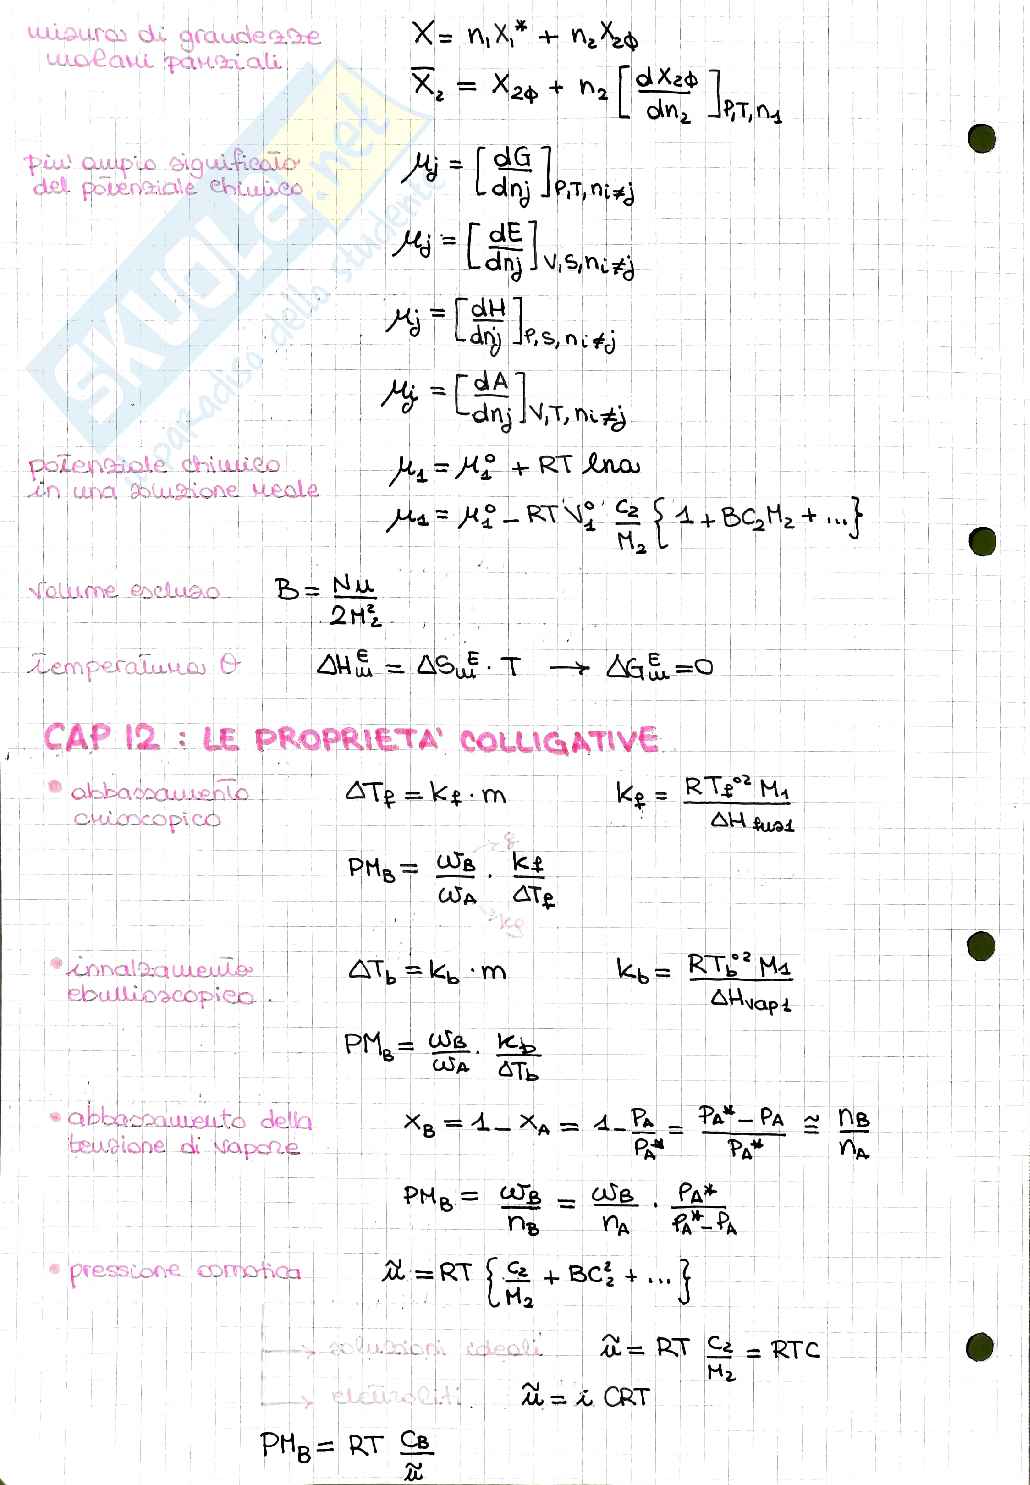 misura di grandezze
molari parziali
X = n₁X₁* + n₂X₂φ
X̄₂ = X₂φ + n₂ [dX₂φ/dn₂]P,T,n₁
piu' ampio significato
del potenziale chimico
μj = [dG/dnj]P,T,ni≠j
μj = [dE/dnj]V,S,ni≠j
μj = [dH/dnj]P,S,ni≠j
μj = [dA/dnj]V,T,ni≠j
potenziale chimico
in una soluzione reale
μ₁ = μ₁° + RT lna
μ₁ = μ₁° - RT V₁° C₂/M₂ { 1 + BC₂M₂ + ...}
volume escluso B = Nu/2M₂²
temperatura θ ΔHm^E = ΔSm^E · T → ΔGm^E = 0
CAP 12 : LE PROPRIETA' COLLIGATIVE
• abbassamento
crioscopico
ΔTf = kf · m kf = RTf°² M₁/ΔHfus1
PMB = ωB/ωA · kf/ΔTf
→ g
→ kg
• innalzamento
ebullioscopico
ΔTb = kb · m kb = RTb°² M1/ΔHvap1
PMB = ωB/ωA · kb/ΔTb
• abbassamento della
tensione di vapore
XB = 1 - XA = 1 - PA/PA* = PA* - PA/PA* ≅ nB/nA
PMB = ωB/nB = ωB/nA · PA*/PA* - PA
• pressione osmotica π̃ = RT { C₂/M₂ + BC₂² + ...}
→ soluzioni ideali π̃ = RT C₂/M₂ = RTC
→ elettroliti π̃ = i CRT
PMB = RT CB/π̃
SKUOLA.net
paradiso dello studente